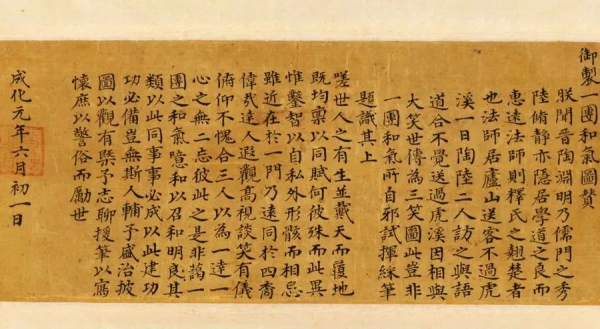 御製一團和氣圖贊
朕聞晉陶淵明乃儒門之秀
陸脩靜亦隱居學道之良而
惠遠法師則釋氏之翹楚者
也法師居廬山送客不過虎
溪一日陶陸二人訪之與語
道合不覺送過虎溪因相與
大笑世傳為三笑圖此豈非
一團和氣所自邪試揮綵筆
題識其上
嗟世人之有生並戴天而履地
既均禀以同賦何彼殊而此異
惟鑿智以自私外形骸而相忌
雖近在於一門乃遠同於四裔
偉哉達人遐觀高視談笑有儀
俯仰不愧合三人以為一達一
心之無二忘彼此之是非藹一
團之和氣噫和以召和明良其
類以此同事事必成以此建功
功必備豈無斯人輔予盛治披
圖以觀有予志聊援筆以寫
懷庶以警俗而勵世
成化元年六月初一日